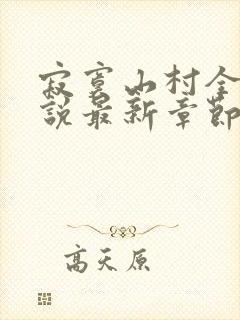 寂寞山村全
說最新章節
高天原